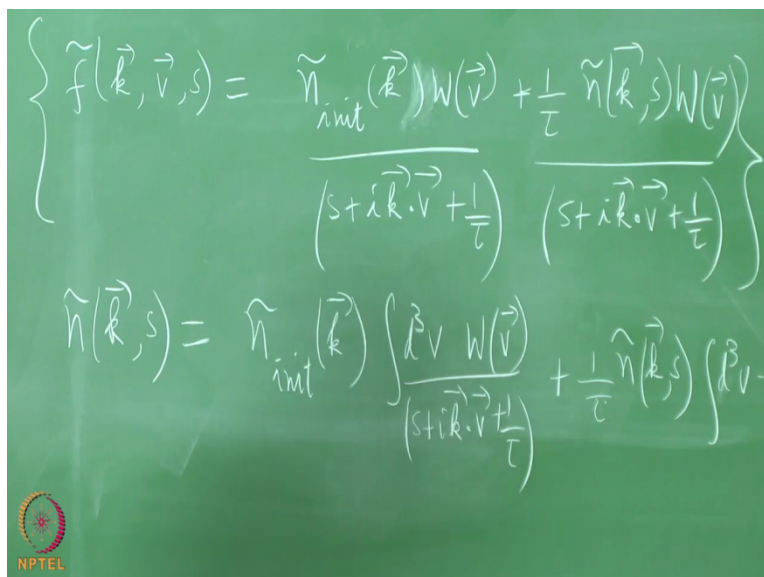 { f̃(k⃗, v⃗, s) = ñ_init(k⃗) W(v⃗) / (s + i k⃗·v⃗ + 1/τ) + 1/τ ñ(k⃗, s) W(v⃗) / (s + i k⃗·v⃗ + 1/τ) }
ñ(k⃗, s) = ñ_init(k⃗) ∫ d³v W(v⃗) / (s + i k⃗·v⃗ + 1/τ) + 1/τ ñ(k⃗, s) ∫ d³v
NPTEL